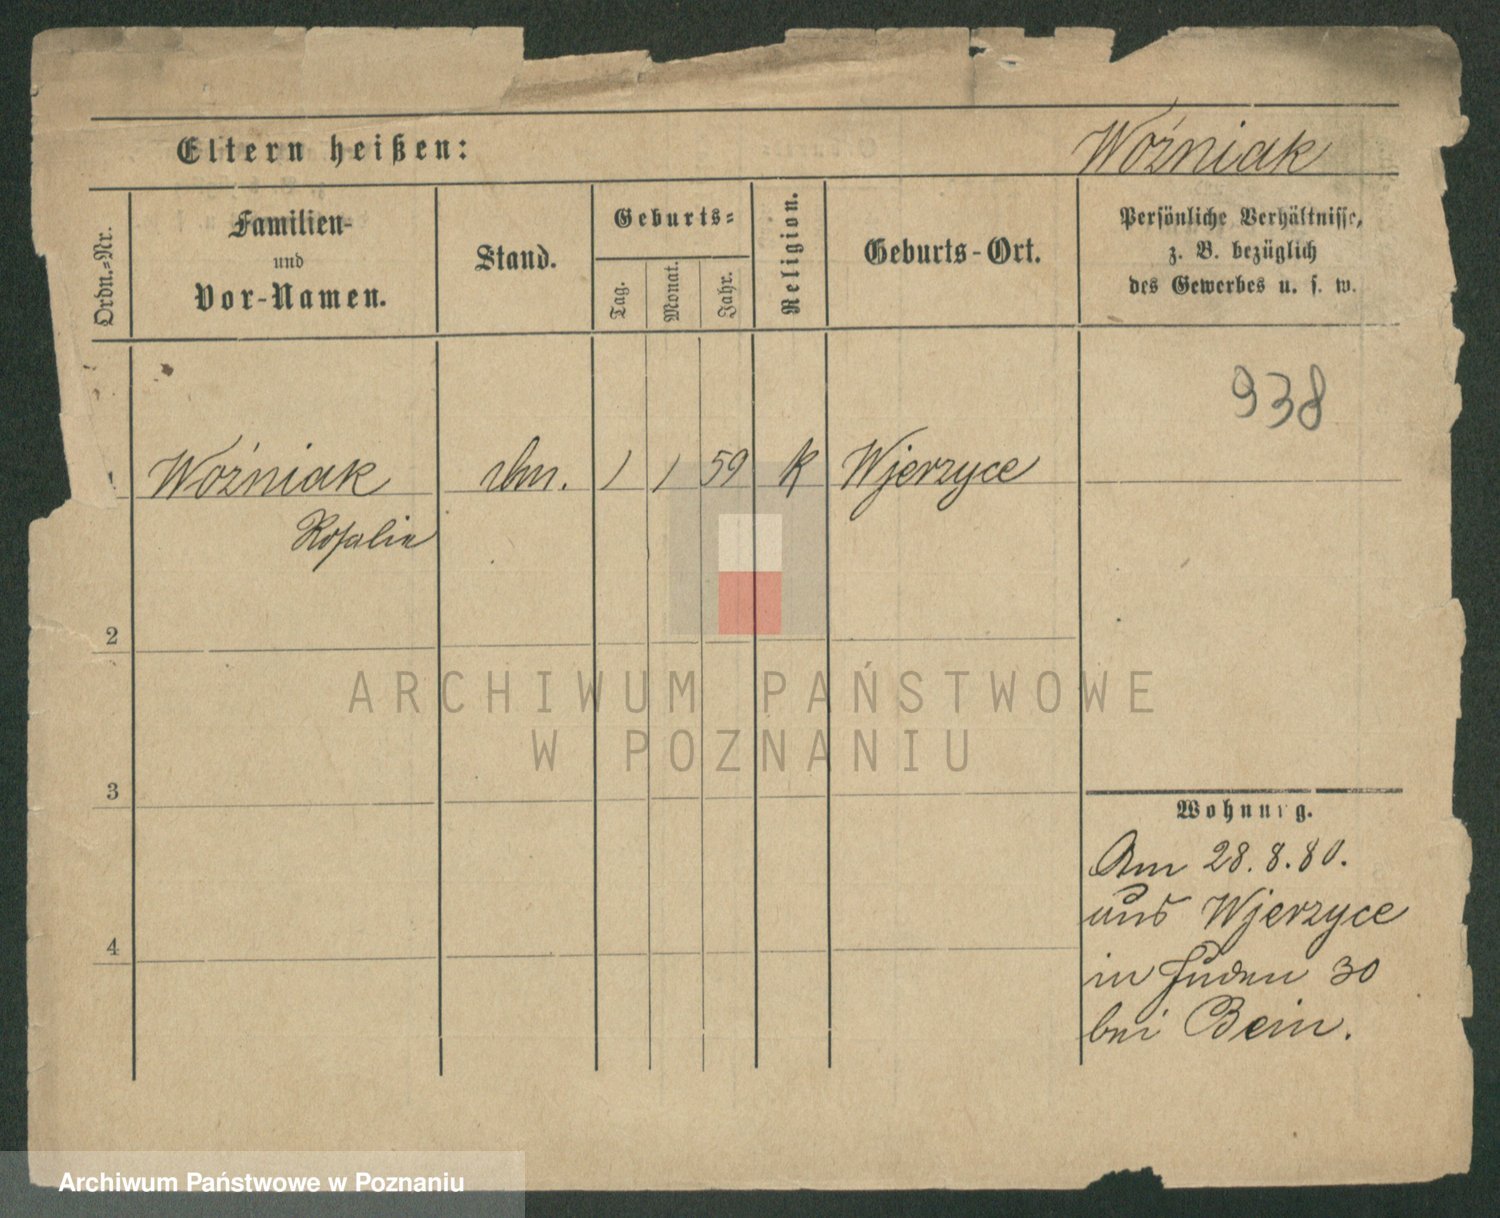 Eltern heißen:
Woźniak
Ordn.-Nr.
Familien-
und
Vor-Namen.
Stand.
Geburts-
Tag.
Monat.
Jahr.
Religion.
Geburts-Ort.
Persönliche Verhältnisse,
z. B. bezüglich
des Gewerbes u. s. w.
938
1 Woźniak 1 1 59 k Wjerzyce
Rosalie
2
3
4
Wohnung.
Am 28.8.80.
aus Wjerzyce
in Juden 30
bei Bein.
ARCHIWUM PAŃSTWOWE
W POZNANIU
Archiwum Państwowe w Poznaniu